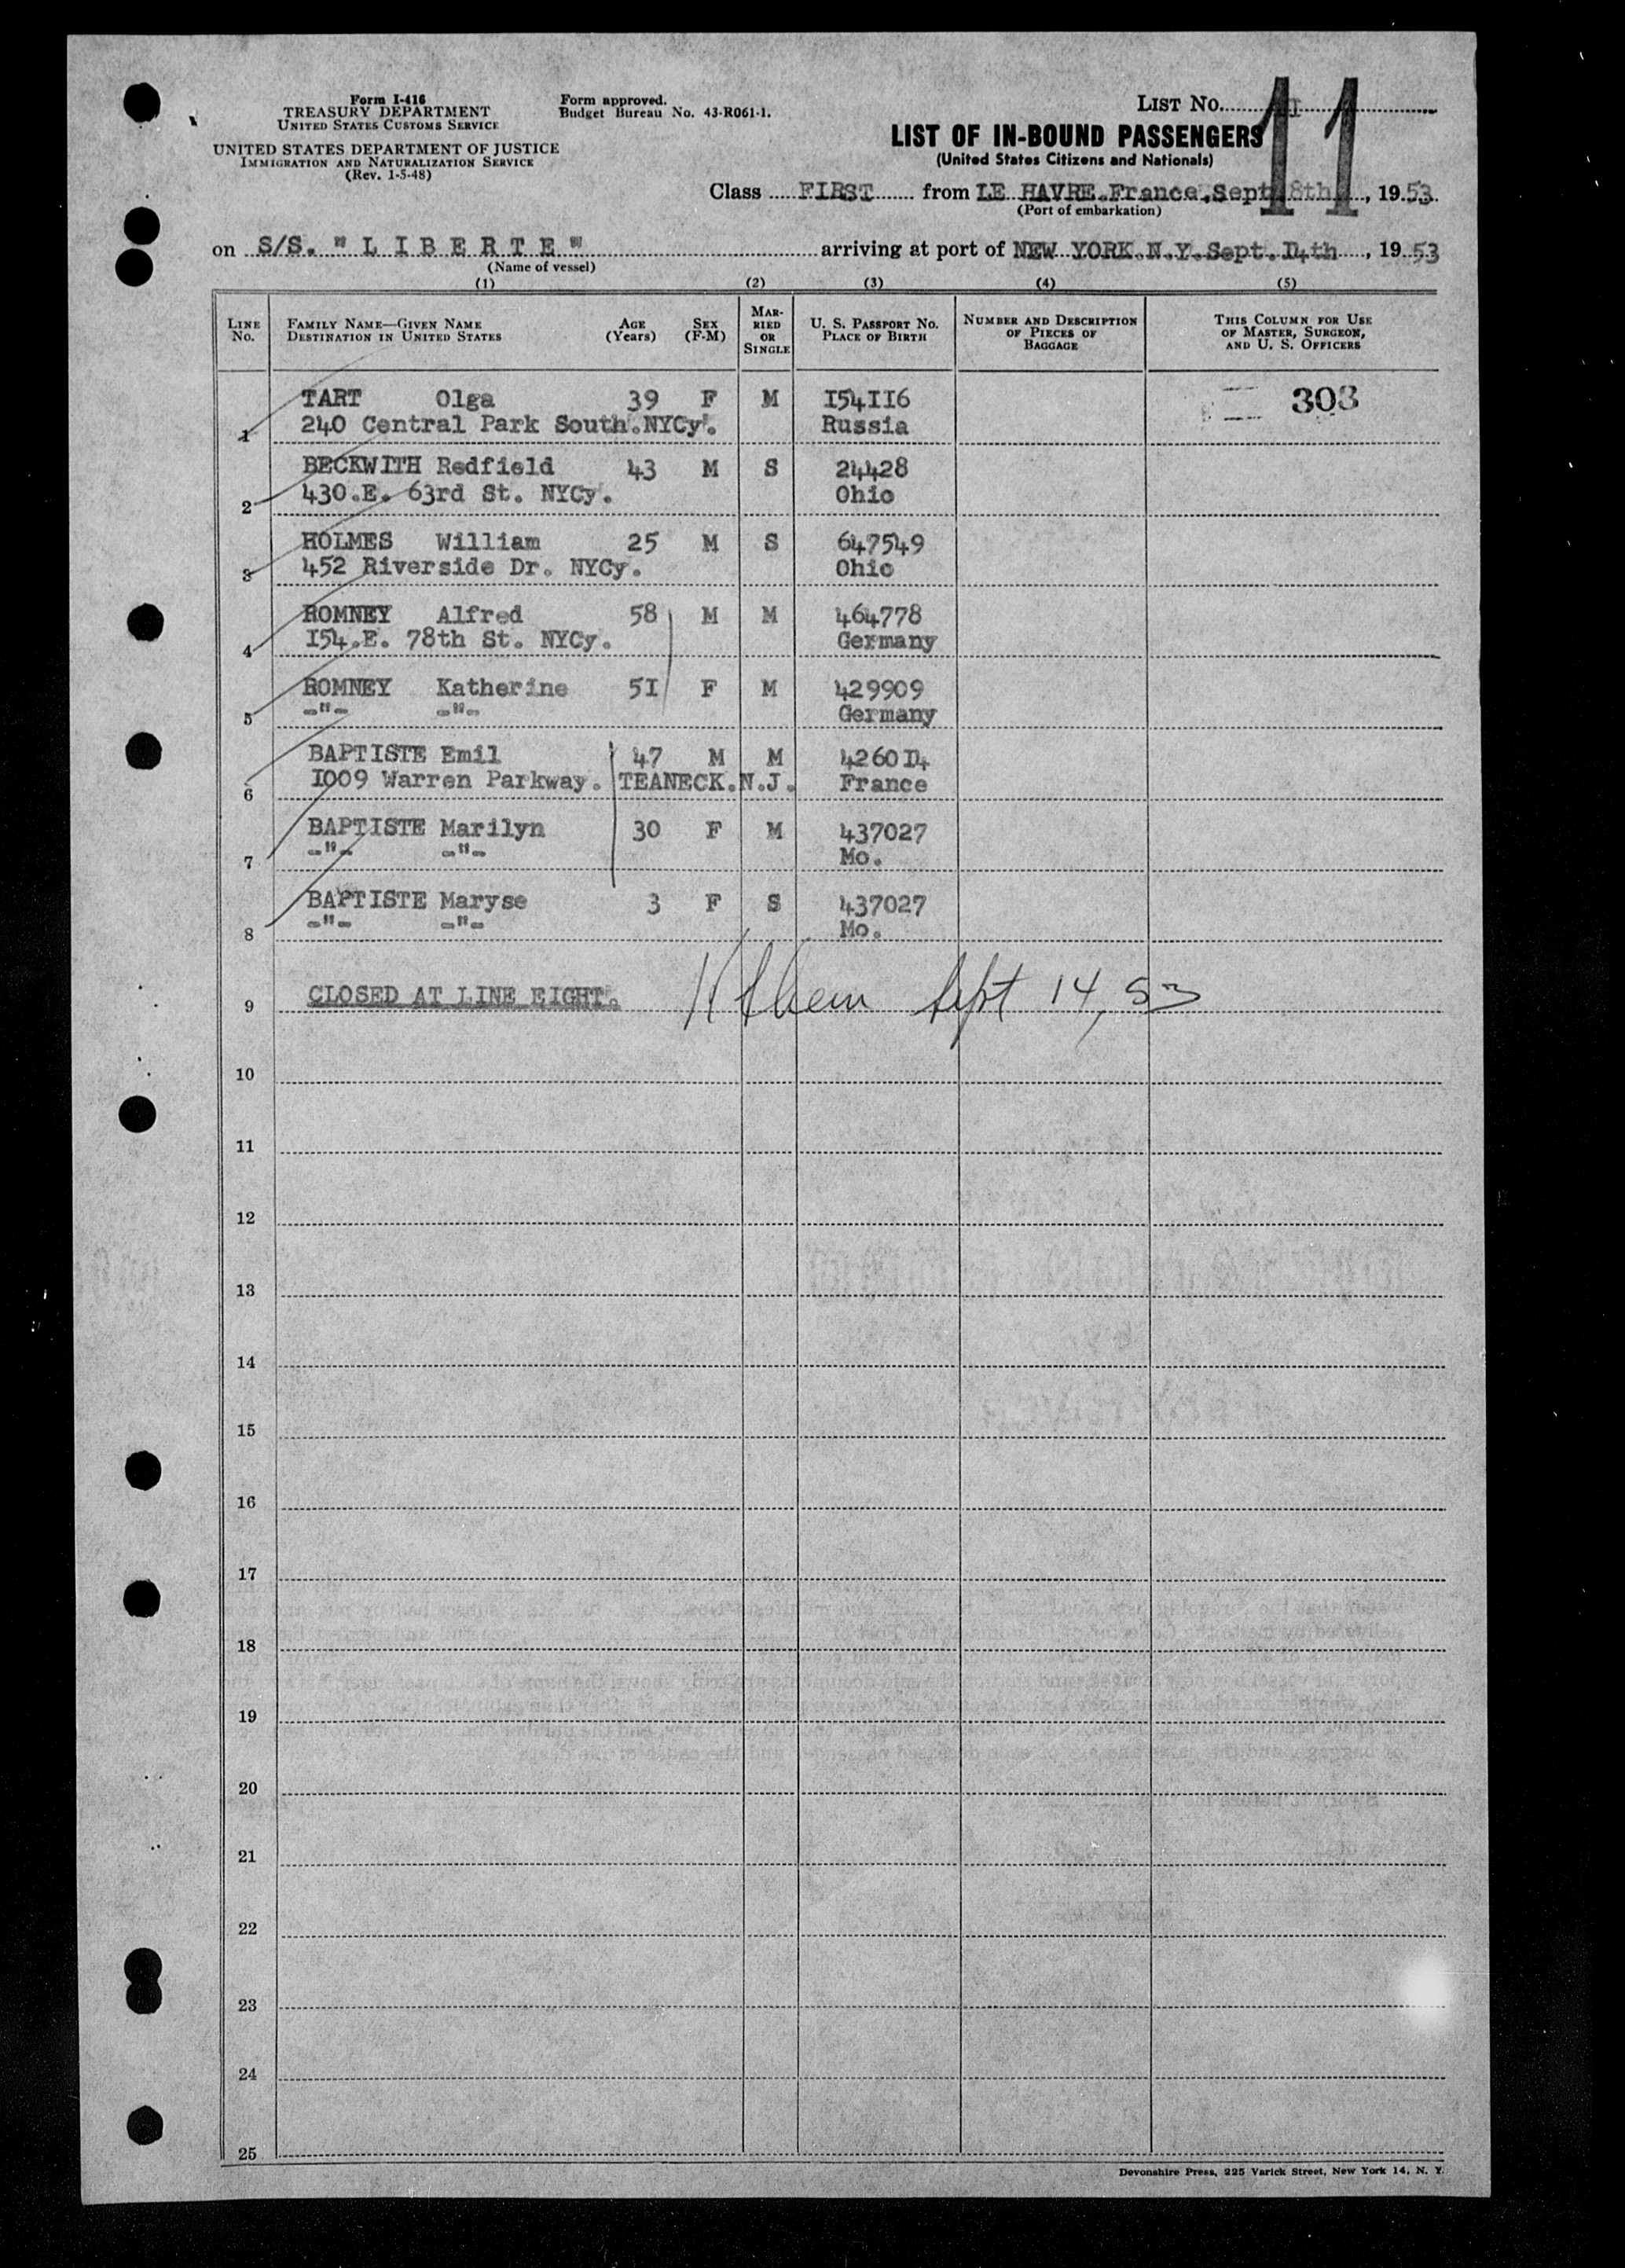 Form I-416
TREASURY DEPARTMENT
UNITED STATES CUSTOMS SERVICE
UNITED STATES DEPARTMENT OF JUSTICE
IMMIGRATION AND NATURALIZATION SERVICE
(Rev. 1-5-48)
Form approved.
Budget Bureau No. 43-R061-1.
LIST No. 11
LIST OF IN-BOUND PASSENGERS
(United States Citizens and Nationals)
Class FIRST from LE HAVRE.France,Sept 8th, 1953.
(Port of embarkation)
on S/S. "LIBERTE" arriving at port of NEW YORK.N.Y.Sept.I4th, 1953
(Name of vessel)
(1) (2) (3) (4) (5)
LINE No. FAMILY NAME—GIVEN NAME DESTINATION IN UNITED STATES AGE (Years) SEX (F-M) MARRIED OR SINGLE U. S. PASSPORT No. PLACE OF BIRTH NUMBER AND DESCRIPTION OF PIECES OF BAGGAGE THIS COLUMN FOR USE OF MASTER, SURGEON, AND U. S. OFFICERS
TART Olga 39 F M I54II6 303
1 240 Central Park South.NYCy. Russia
BECKWITH Redfield 43 M S 24428
2 430.E. 63rd St. NYCy. Ohio
HOLMES William 25 M S 647549
3 452 Riverside Dr. NYCy. Ohio
ROMNEY Alfred 58 M M 464778
4 I54.E. 78th St. NYCy. Germany
ROMNEY Katherine 5I F M 429909
5 -"- -"- Germany
BAPTISTE Emil 47 M M 4260I4
6 I009 Warren Parkway. TEANECK.N.J. France
BAPTISTE Marilyn 30 F M 437027
7 -"- -"- Mo.
BAPTISTE Maryse 3 F S 437027
8 -"- -"- Mo.
9 CLOSED AT LINE EIGHT. Sept 14, 53
10
11
12
13
14
15
16
17
18
19
20
21
22
23
24
25
Devonshire Press, 225 Varick Street, New York 14, N. Y.